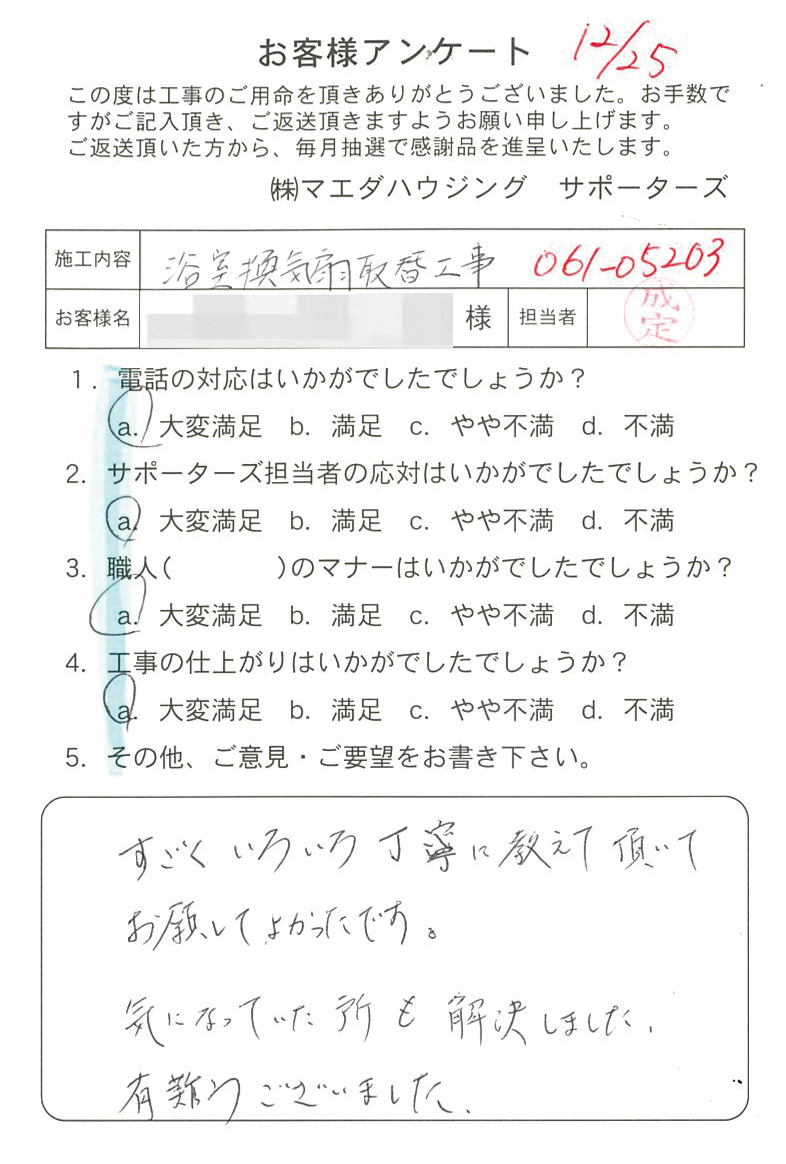 お客様アンケート 12/25
この度は工事のご用命を頂きありがとうございました。お手数で
すがご記入頂き、ご返送頂きますようお願い申し上げます。
ご返送頂いた方から、毎月抽選で感謝品を進呈いたします。
㈱マエダハウジング サポーターズ
施工内容 浴室換気扇取替工事 061-05203
お客様名 様 担当者
1. 電話の対応はいかがでしたでしょうか？
a. 大変満足 b. 満足 c. やや不満 d. 不満
2. サポーターズ担当者の応対はいかがでしたでしょうか？
a. 大変満足 b. 満足 c. やや不満 d. 不満
3. 職人( )のマナーはいかがでしたでしょうか？
a. 大変満足 b. 満足 c. やや不満 d. 不満
4. 工事の仕上がりはいかがでしたでしょうか？
a. 大変満足 b. 満足 c. やや不満 d. 不満
5. その他、ご意見・ご要望をお書き下さい。
すごくいろいろ丁寧に教えて頂いて
お願してよかったです。
気になっていた所も解決しました.
有難うございました.